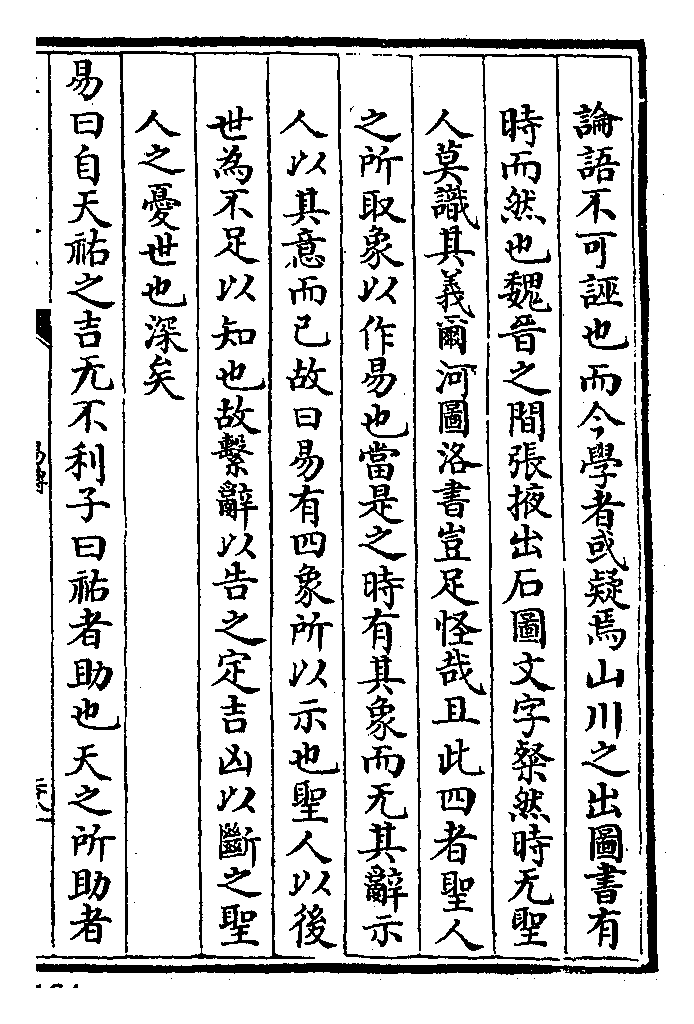 論語不可誣也而今學者或疑焉山川之出圖書有
時而然也魏晉之間張掖出石圖文字粲然時无聖
人莫識其義爾河圖洛書豈足怪哉且此四者聖人
之所取象以作易也當是之時有其象而无其辭示
人以其意而已故曰易有四象所以示也聖人以後
世為不足以知也故繫辭以告之定吉凶以斷之聖
人之憂世也深矣
易曰自天祐之吉无不利子曰祐者助也天之所助者